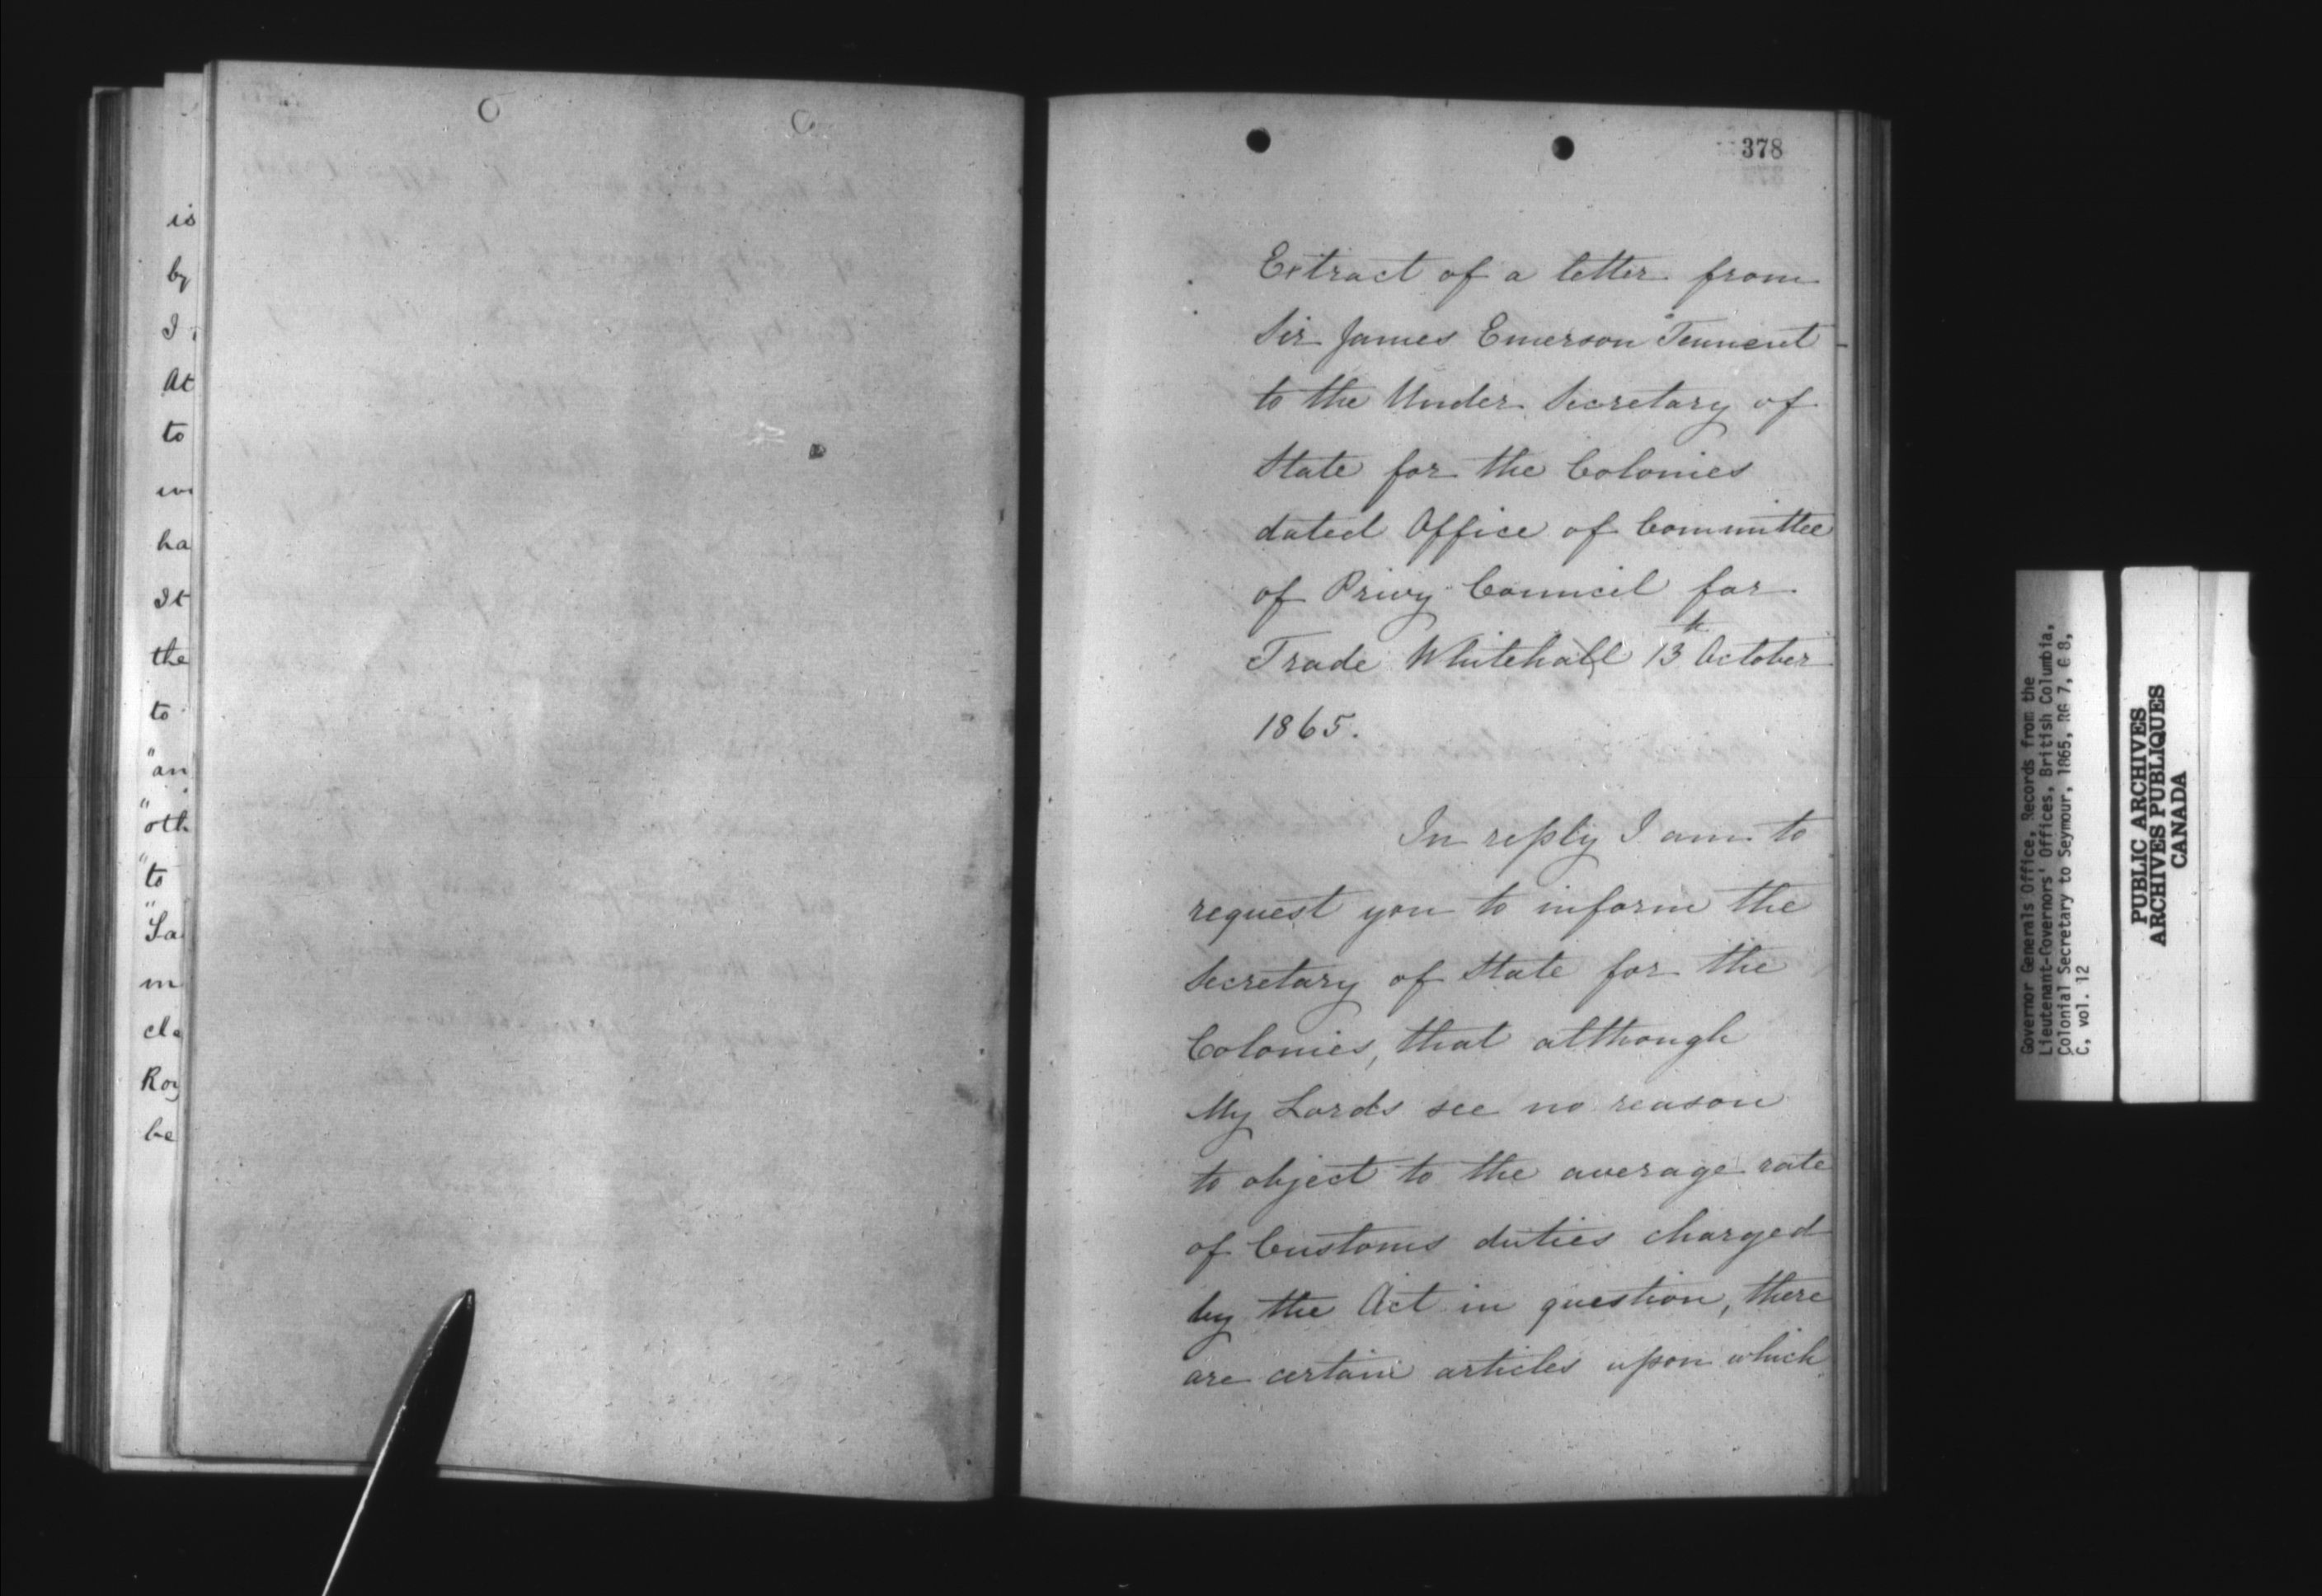 is
by
I
At
to
ha
It
the
to
"an
"oth
"to
"Sa
in
cla
Roy
be
378
Extract of a letter from
Sir James Emerson Tennent
to the Under Secretary of
State for the Colonies
dated Office of Committee
of Privy Council for
Trade Whitehall 13th October
1865.
In reply I am to
request you to inform the
Secretary of State for the
Colonies, that although
My Lords see no reason
to object to the average rate
of Customs duties charged
by the Act in question, there
are certain articles upon which
Governor Generals Office, Records from the
Lieutenant-Governors' Offices, British Columbia,
Colonial Secretary to Seymour, 1865, RG 7, G 8,
C, vol. 12
PUBLIC ARCHIVES
ARCHIVES PUBLIQUES
CANADA